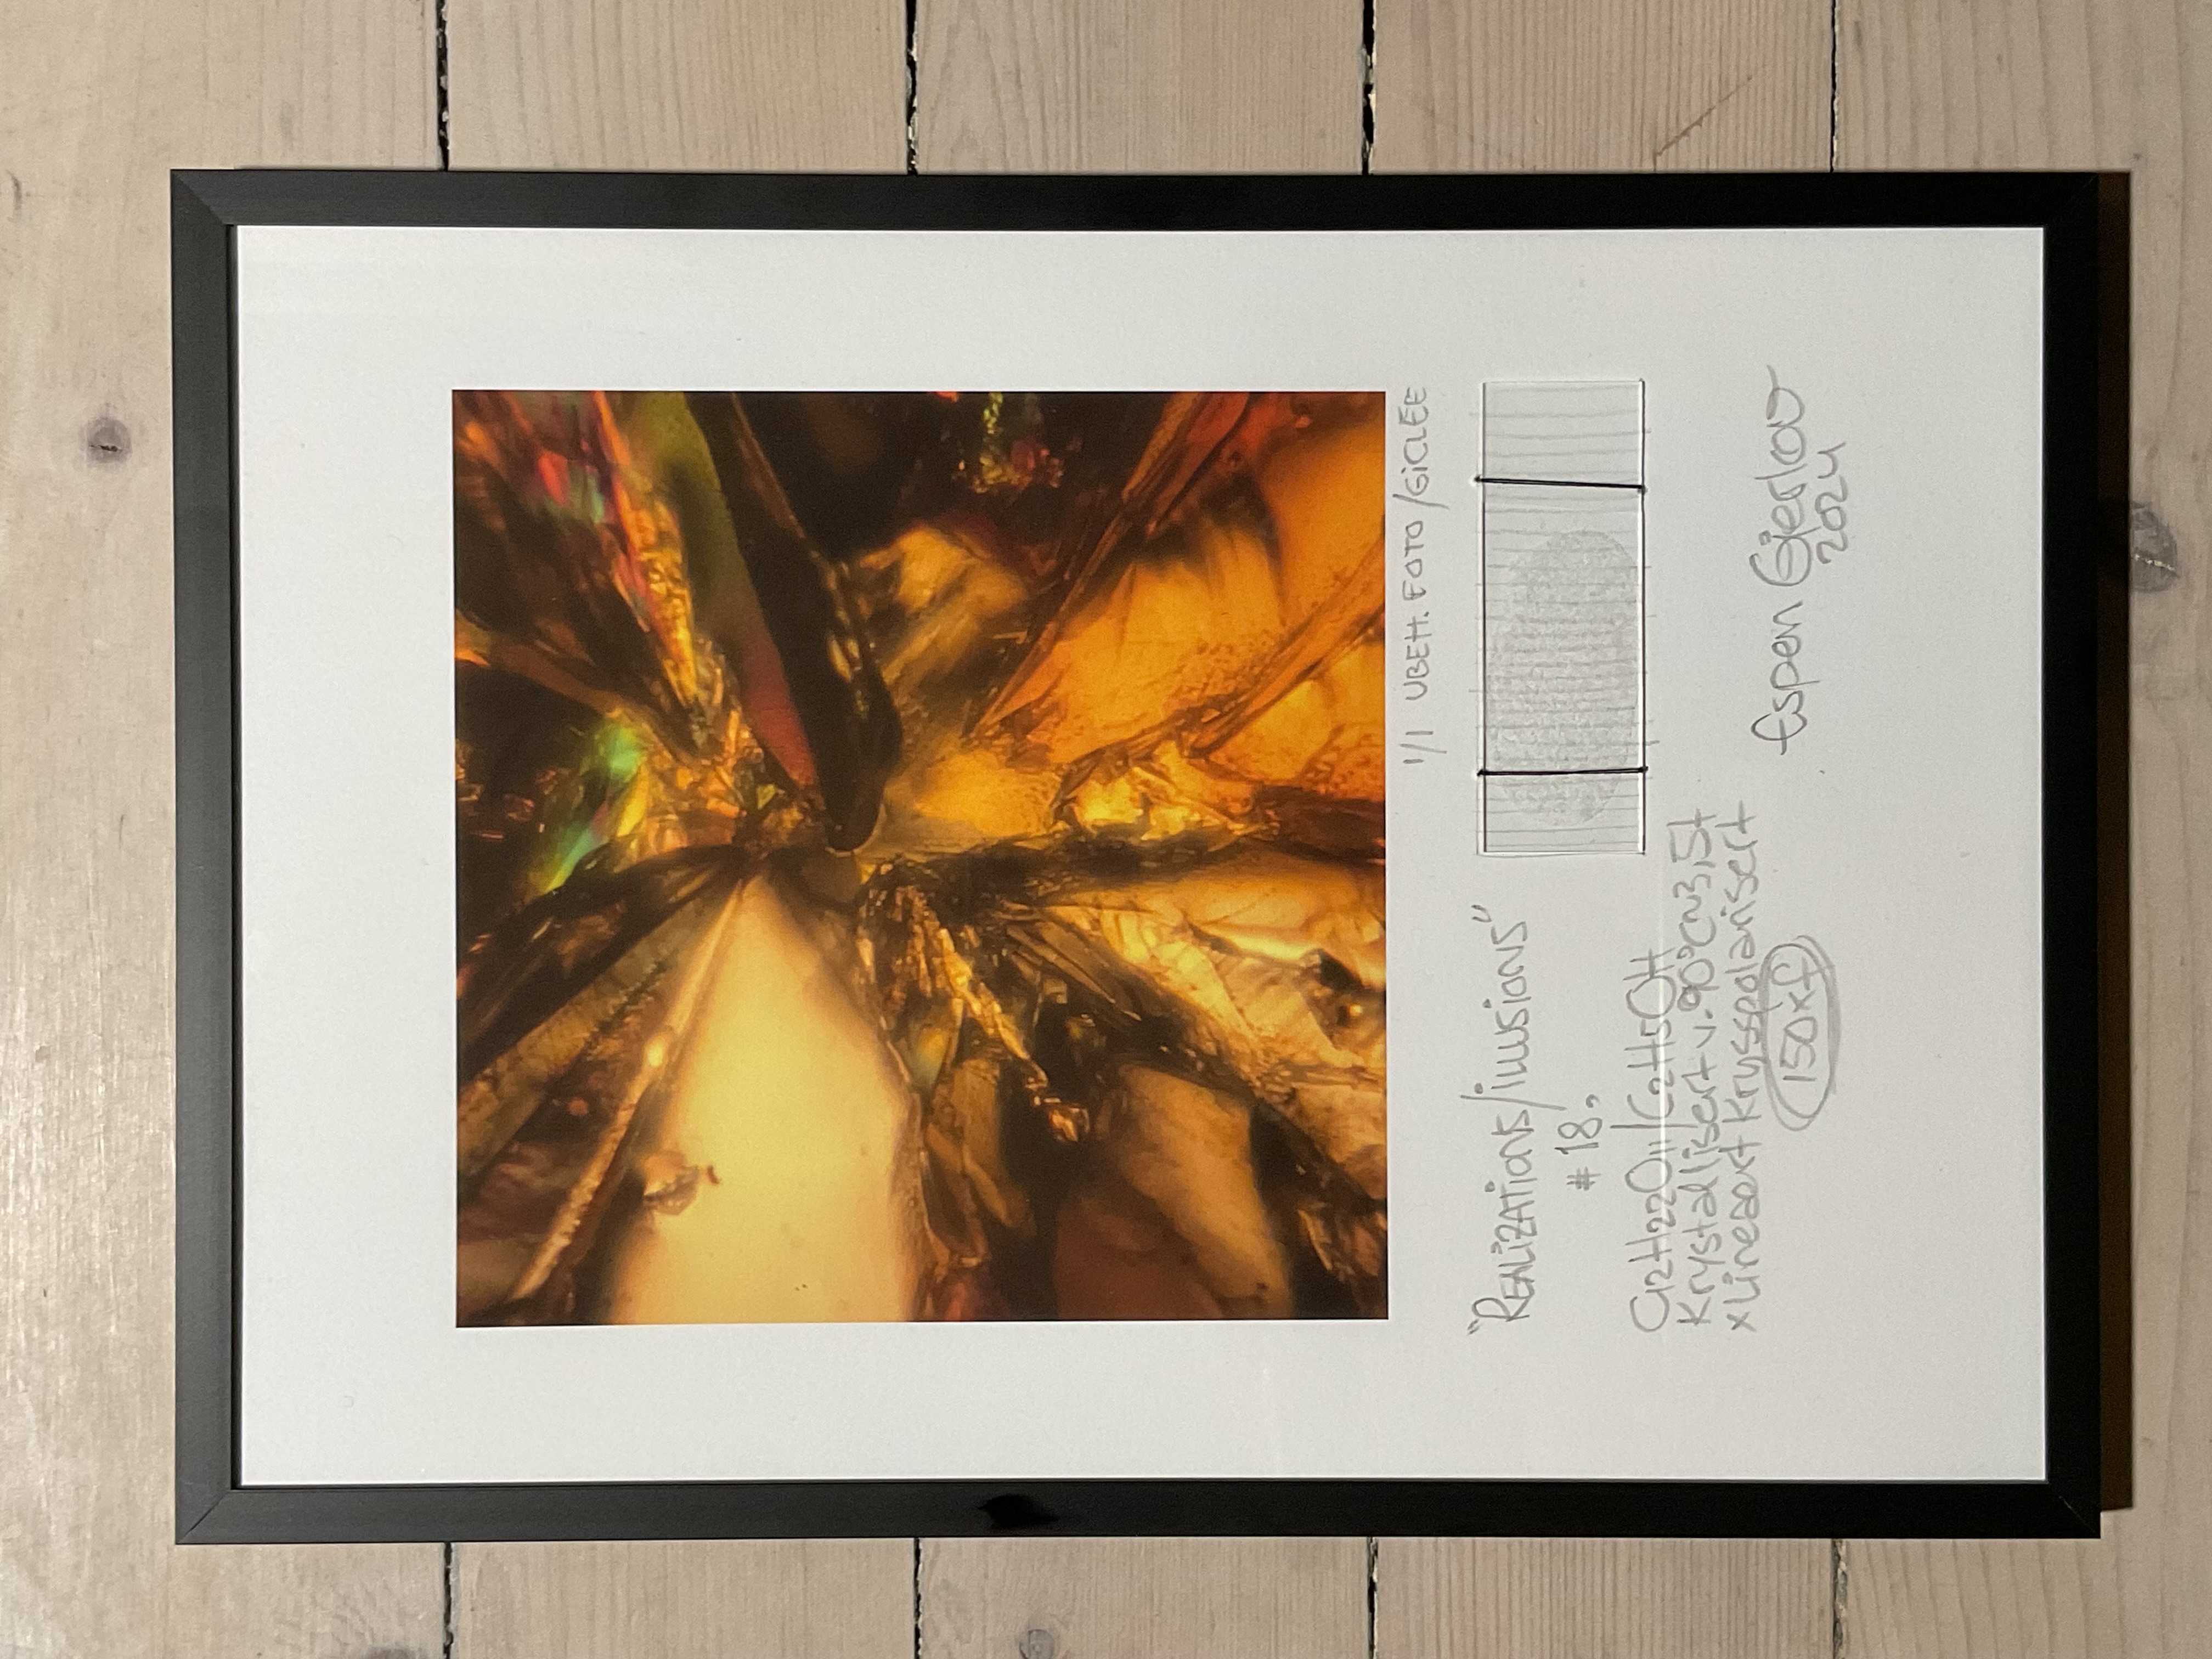 1/1 UBEH. FOTO/GiCLEE
"REALiZATiONS/iLLUSiONS"
#18.
C12H22O11/C2H5OH
Krystallisert v. 90°C~3,5t
xLineært Krysspolarisert
150xf
Espen Gjerlov
2024